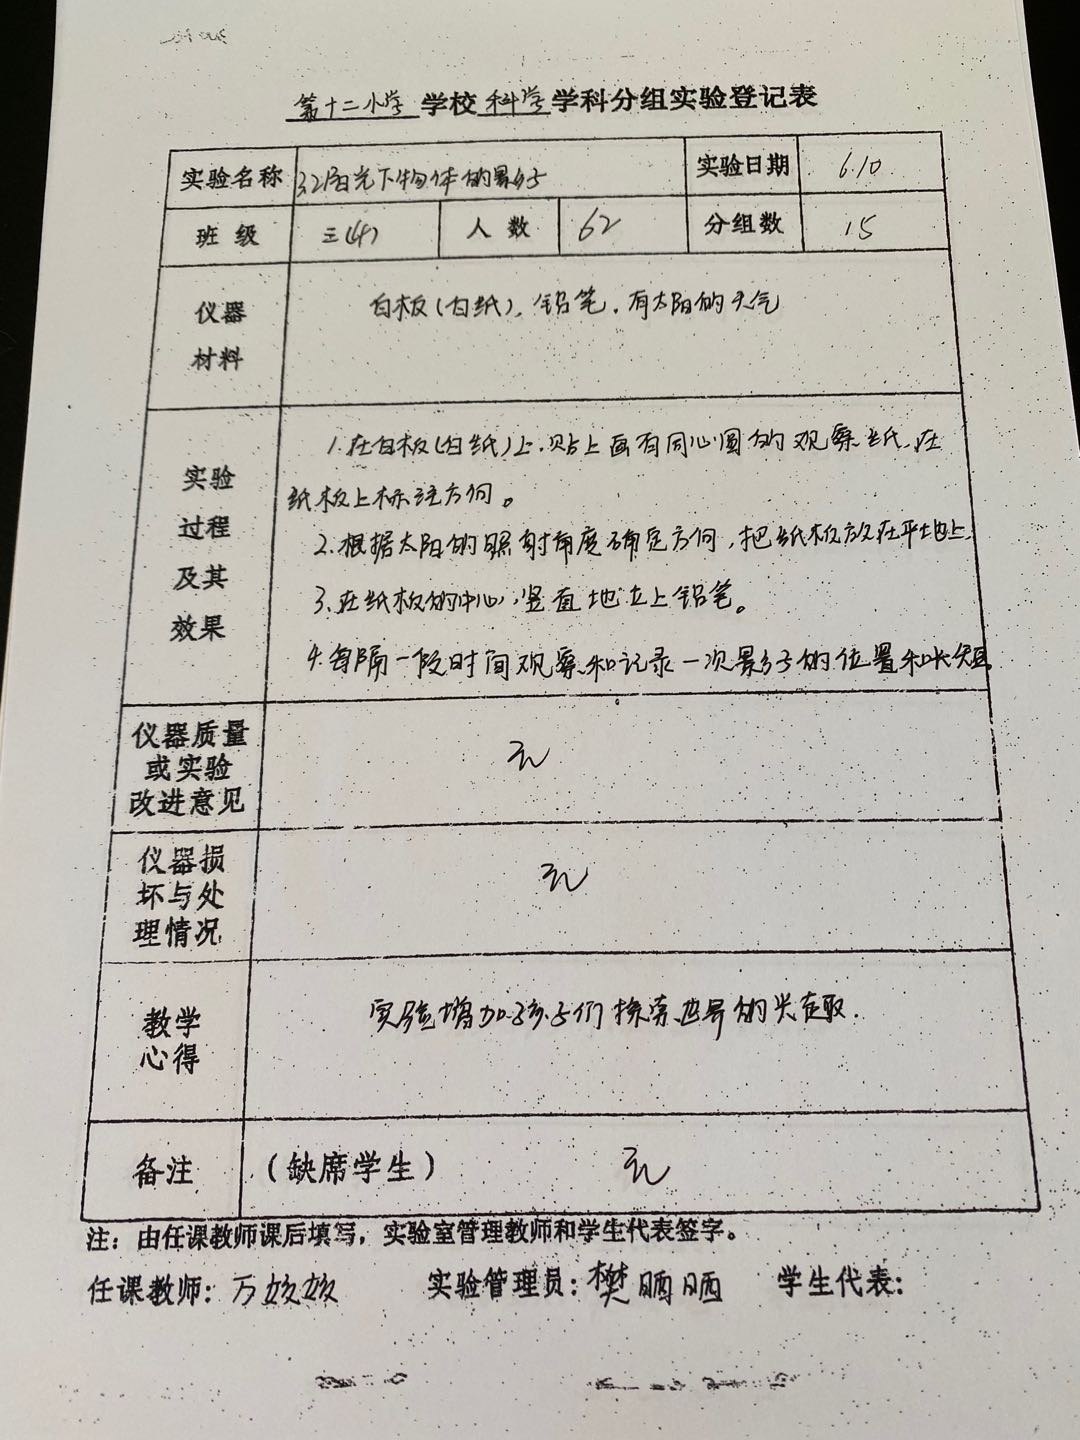 第十二小学学校科学学科分组实验登记表
实验名称 3.2阳光下物体的影子 实验日期 6.10
班级 三(4) 人数 62 分组数 15
仪器
材料
白板(白纙)、铅笔、有太阳的天气
实验
过程
及其
效果
1.在白板(白纸)上,贴上画有同心圆的观察纸,在
纸板上标注方向。
2.根据太阳的照射角度确定方向,把纸板放在平地上.
3.在纸板的中心,竖直地立上铅笔。
4.每隔一段时间观察和记录一次影子的位置和长短
仪器质量
或实验
改进意见
无
仪器损
坏与处
理情况
无
教学
心得
实验增加孩子们探索世界的兴趣.
备注 (缺席学生) 无
注:由任课教师课后填写,实验室管理教师和学生代表签字。
任课教师:万姣姣 实验管理员:樊晒晒 学生代表: